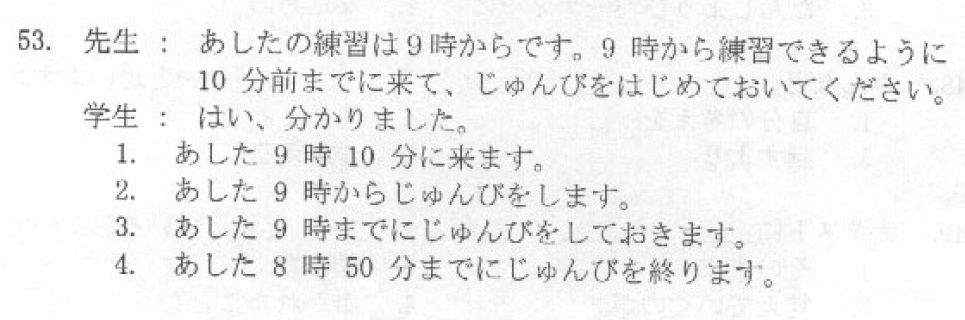 53. 先生 : あしたの練習は9時からです。9 時から練習できるように
10 分前までに来て、じゅんびをはじめておいてください。
学生 : はい、分かりました。
1. あした 9 時 10 分に来ます。
2. あした 9 時からじゅんびをします。
3. あした 9 時までにじゅんびをしておきます。
4. あした 8 時 50 分までにじゅんびを終ります。